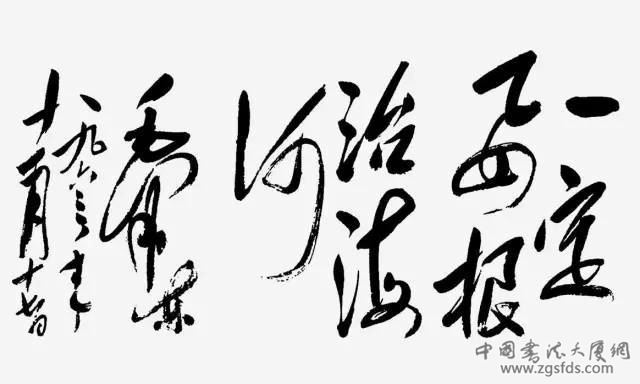 一定
要根
治海
河
毛泽东
一九六三年
十一月十七日
中國書法大廈網
www.zgsfds.com